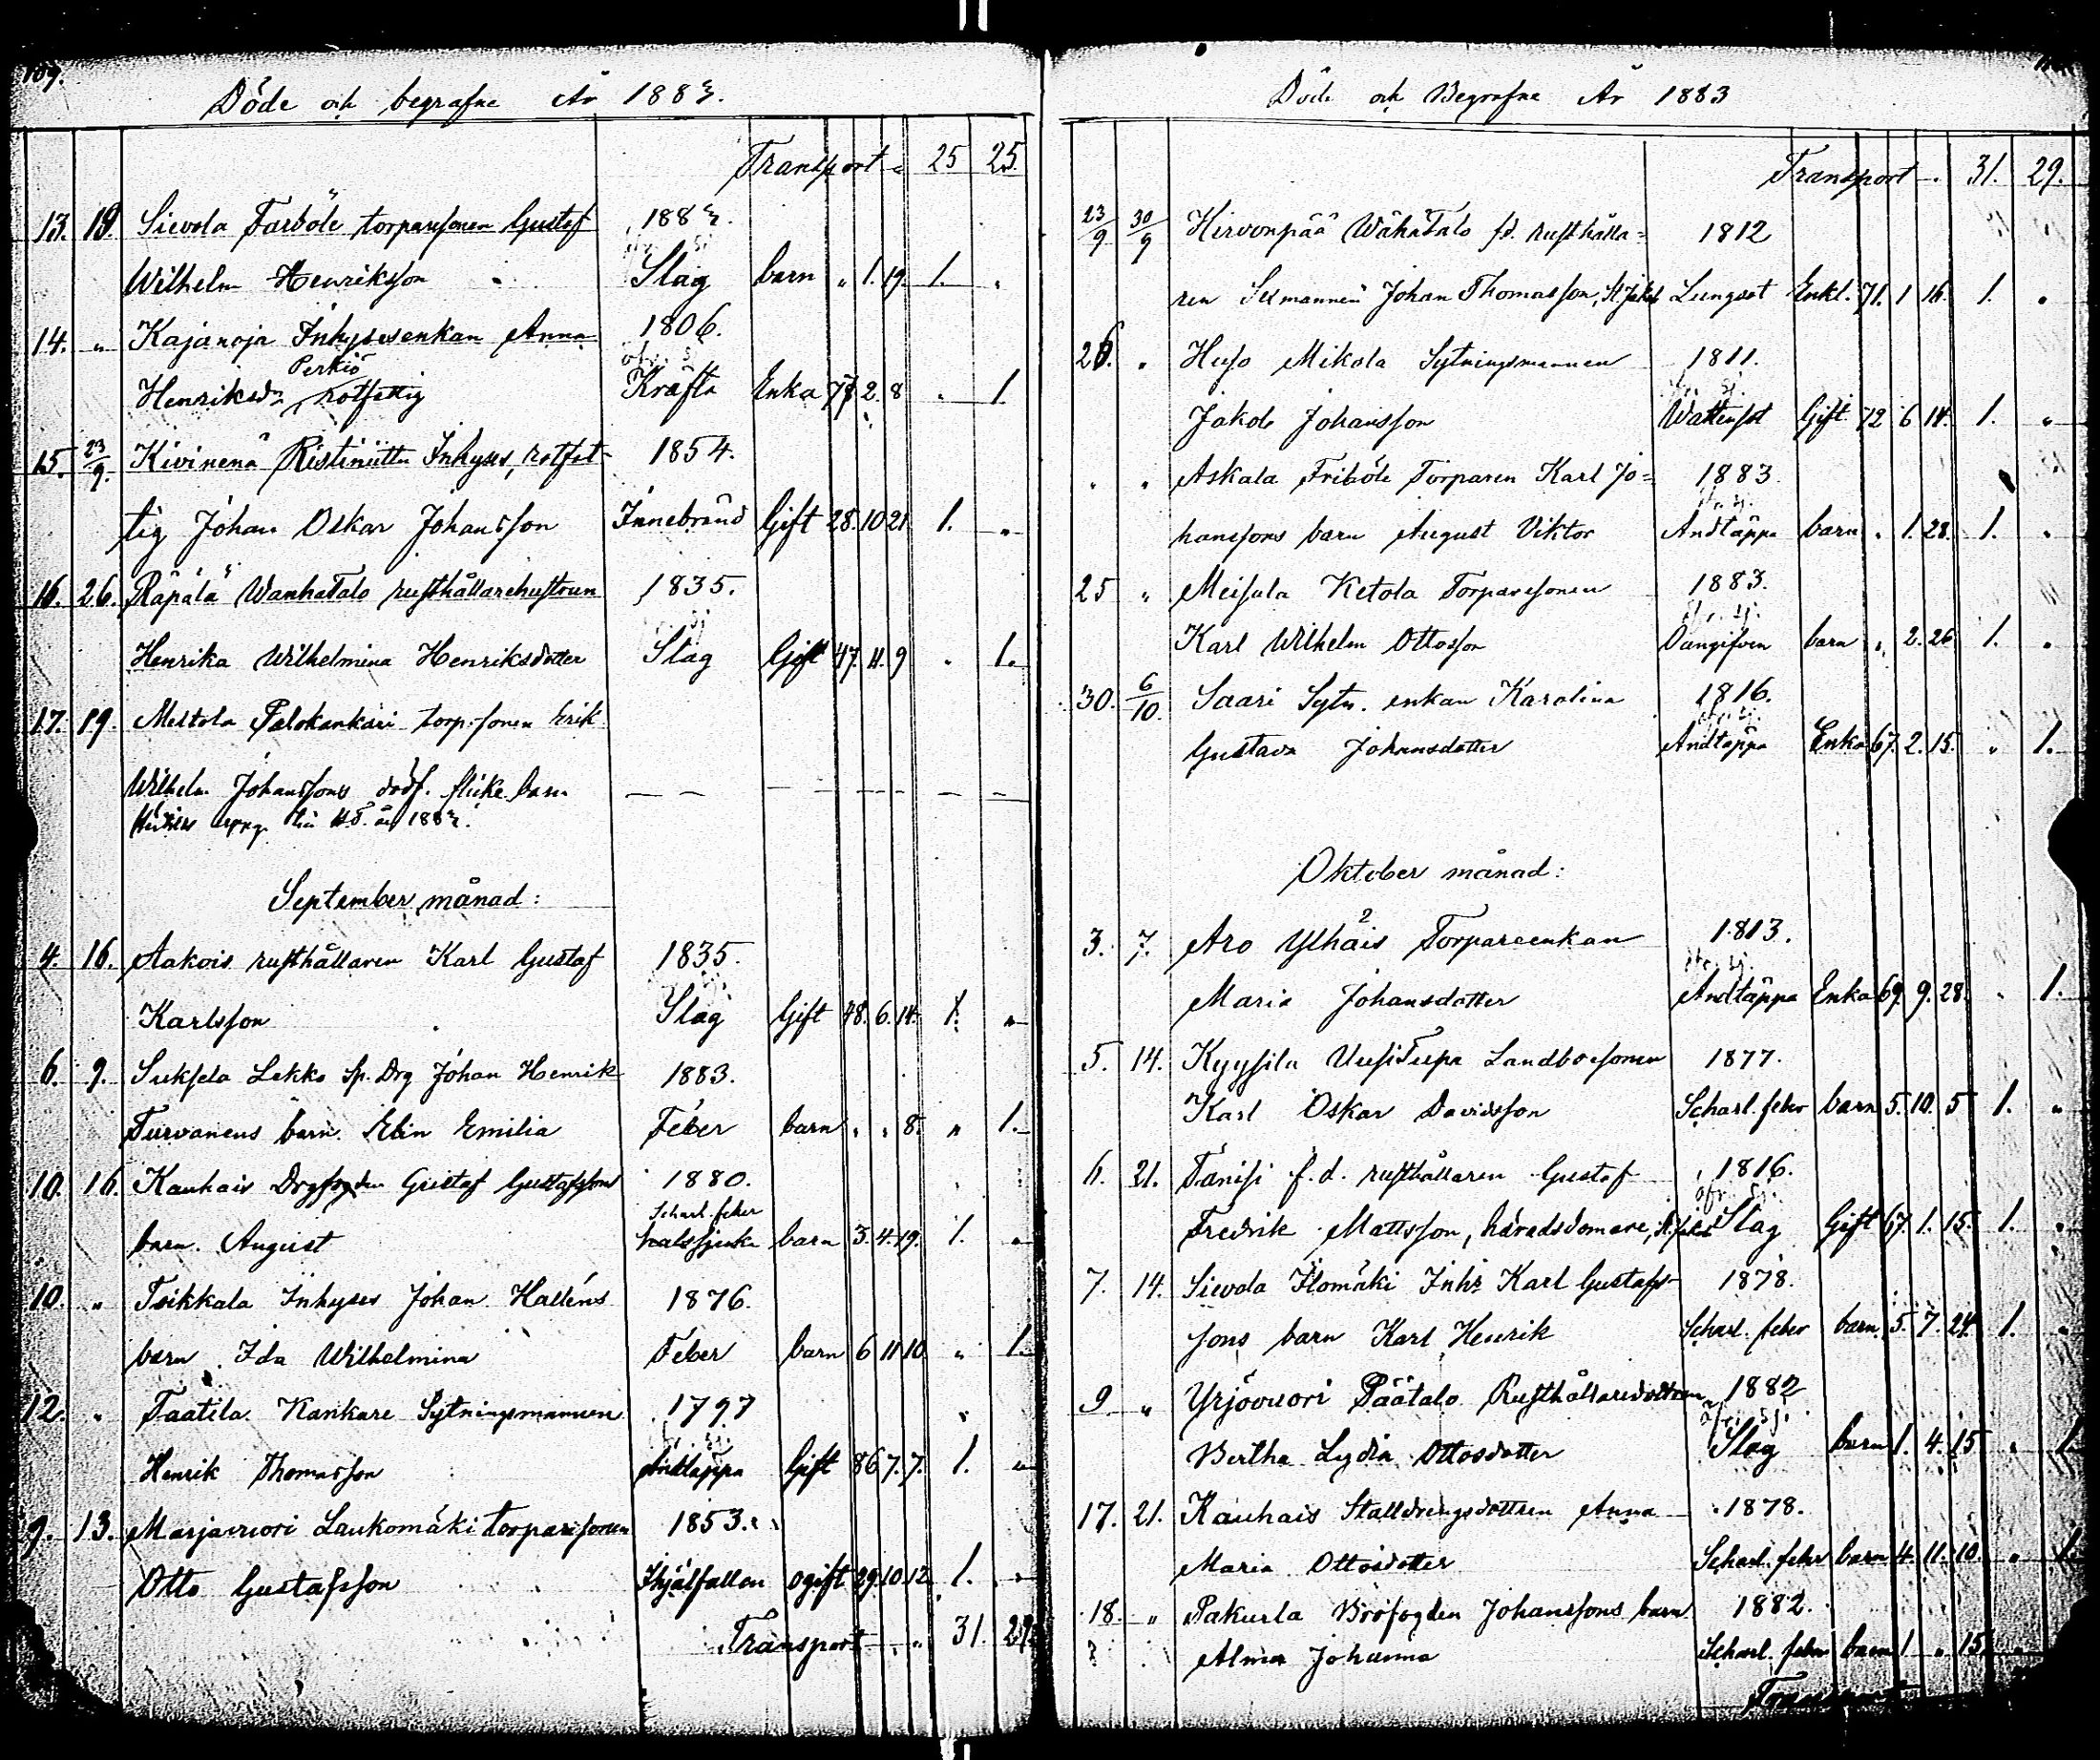 109.
Döde och begrafne År 1883.
Transport „ 25 25.
13. 19. Sievola Farböle torparesonen Gustaf 1883.
Wilhelm Henriksson Slag barn „ 1. 19. 1. „
14. „ Kajanoja Inhysesenkan Anna 1806.
Perkiö
Henriksdr rotfattig Kräfta Enka 77 2. 8 „ 1.
15. 23/9. Kivinenä Ristiniittu Inhyses, rotfat- 1854.
tig Johan Oskar Johansson Innebränd Gift 28. 10 21 1. „
16. 26. Räpälä Wanhatalo rusthållarehustrun 1835.
Henrika Wilhelmina Henriksdotter Slag Gift 47. 11. 9 „ 1.
17. 19. Mestola Palokankari torp.sonen Erik
Wilhelm Johanssons dödf. flicke barn — —
uppg. år 1883.
September månad:
4. 16. Aakois rusthållaren Karl Gustaf 1835.
Karlsson Slag Gift 48. 6. 14. 1. „
6. 9. Suksela Lekko Sp. Drg Johan Henrik 1883.
Turvanens barn Elin Emilia Feber barn „ „ 8. „ 1.
10. 16. Kauhais Drgfogden Gustaf Gustafssons 1880.
Scharl. feber
barn August halssjuka barn 3. 4. 19. 1. „
10. „ Tsikkala Inhyses Johan Halléns 1876.
barn Ida Wilhelmina Feber barn 6 11 10. „ 1.
12. „ Taatila Kankare Sytningsmannen 1797
Henrik Thomasson Andtäppa Gift 86 7. 7. 1. „
9. 13. Marjavuori Laukomäki torparesonen 1853.
Otto Gustafsson Ihjälfallen ogift 29. 10 12. 1. „
Transport „ 31. 29.
Döde och Begrafne År 1883
Transport „ 31. 29.
23/9 30/9 Hirvonpää Wähätalo fd. rusthålla= 1812
ren Sexmannen Johan Thomasson, Lungsot Enkl. 71. 1 16. 1. „
26. „ Huso Mikola Sytningsmannen 1811.
Jakob Johansson Wattensot Gift 72 6 14. 1. „
„ „ Askala Friböle Torparen Karl Jo= 1883.
hanssons barn August Viktor Andtäppa barn „ 1. 28. 1. „
25 „ Meisala Ketola Torparesonen 1883.
Karl Wilhelm Ottosson Oangifven barn „ 2. 26 1. „
30. 6/10. Saari Sytn. enkan Karolina 1816.
Gustava Johansdotter Andtäppa Enka 67. 2. 15. „ 1.
Oktober månad:
3. 7. Aro Ylhäis Torpareenkan 1813.
Maria Johansdotter Andtäppa Enka 69. 9. 28. „ 1.
5. 14. Kyysilä Uusitupa Landboesonen 1877.
Karl Oskar Davidsson Scharl. feber barn 5. 10. 5 1. „
6. 21. Tanisi f.d. rusthållaren Gustaf 1816.
Fredrik Mattsson, häradsdomare, Slag Gift 67. 1. 15. 1. „
7. 14. Sievola Ilomäki Inhs Karl Gustafs- 1878.
sons barn Karl Henrik Scharl. feber barn 5. 7. 24. 1. „
9 „ Yrjövuori Päätalo Rusthållaredottren 1882
Bertha Lydia Ottosdotter Slag barn 1. 4. 15 „ 1.
17. 21. Kauhais Stalldrengsdottren Anna 1878.
Maria Ottosdotter Scharl. feber barn 4. 11. 10. „ 1.
18. „ Pakurla Brofogden Johanssons barn 1882.
Alma Johanna Scharl. feber barn 1 „ 15.
Transport